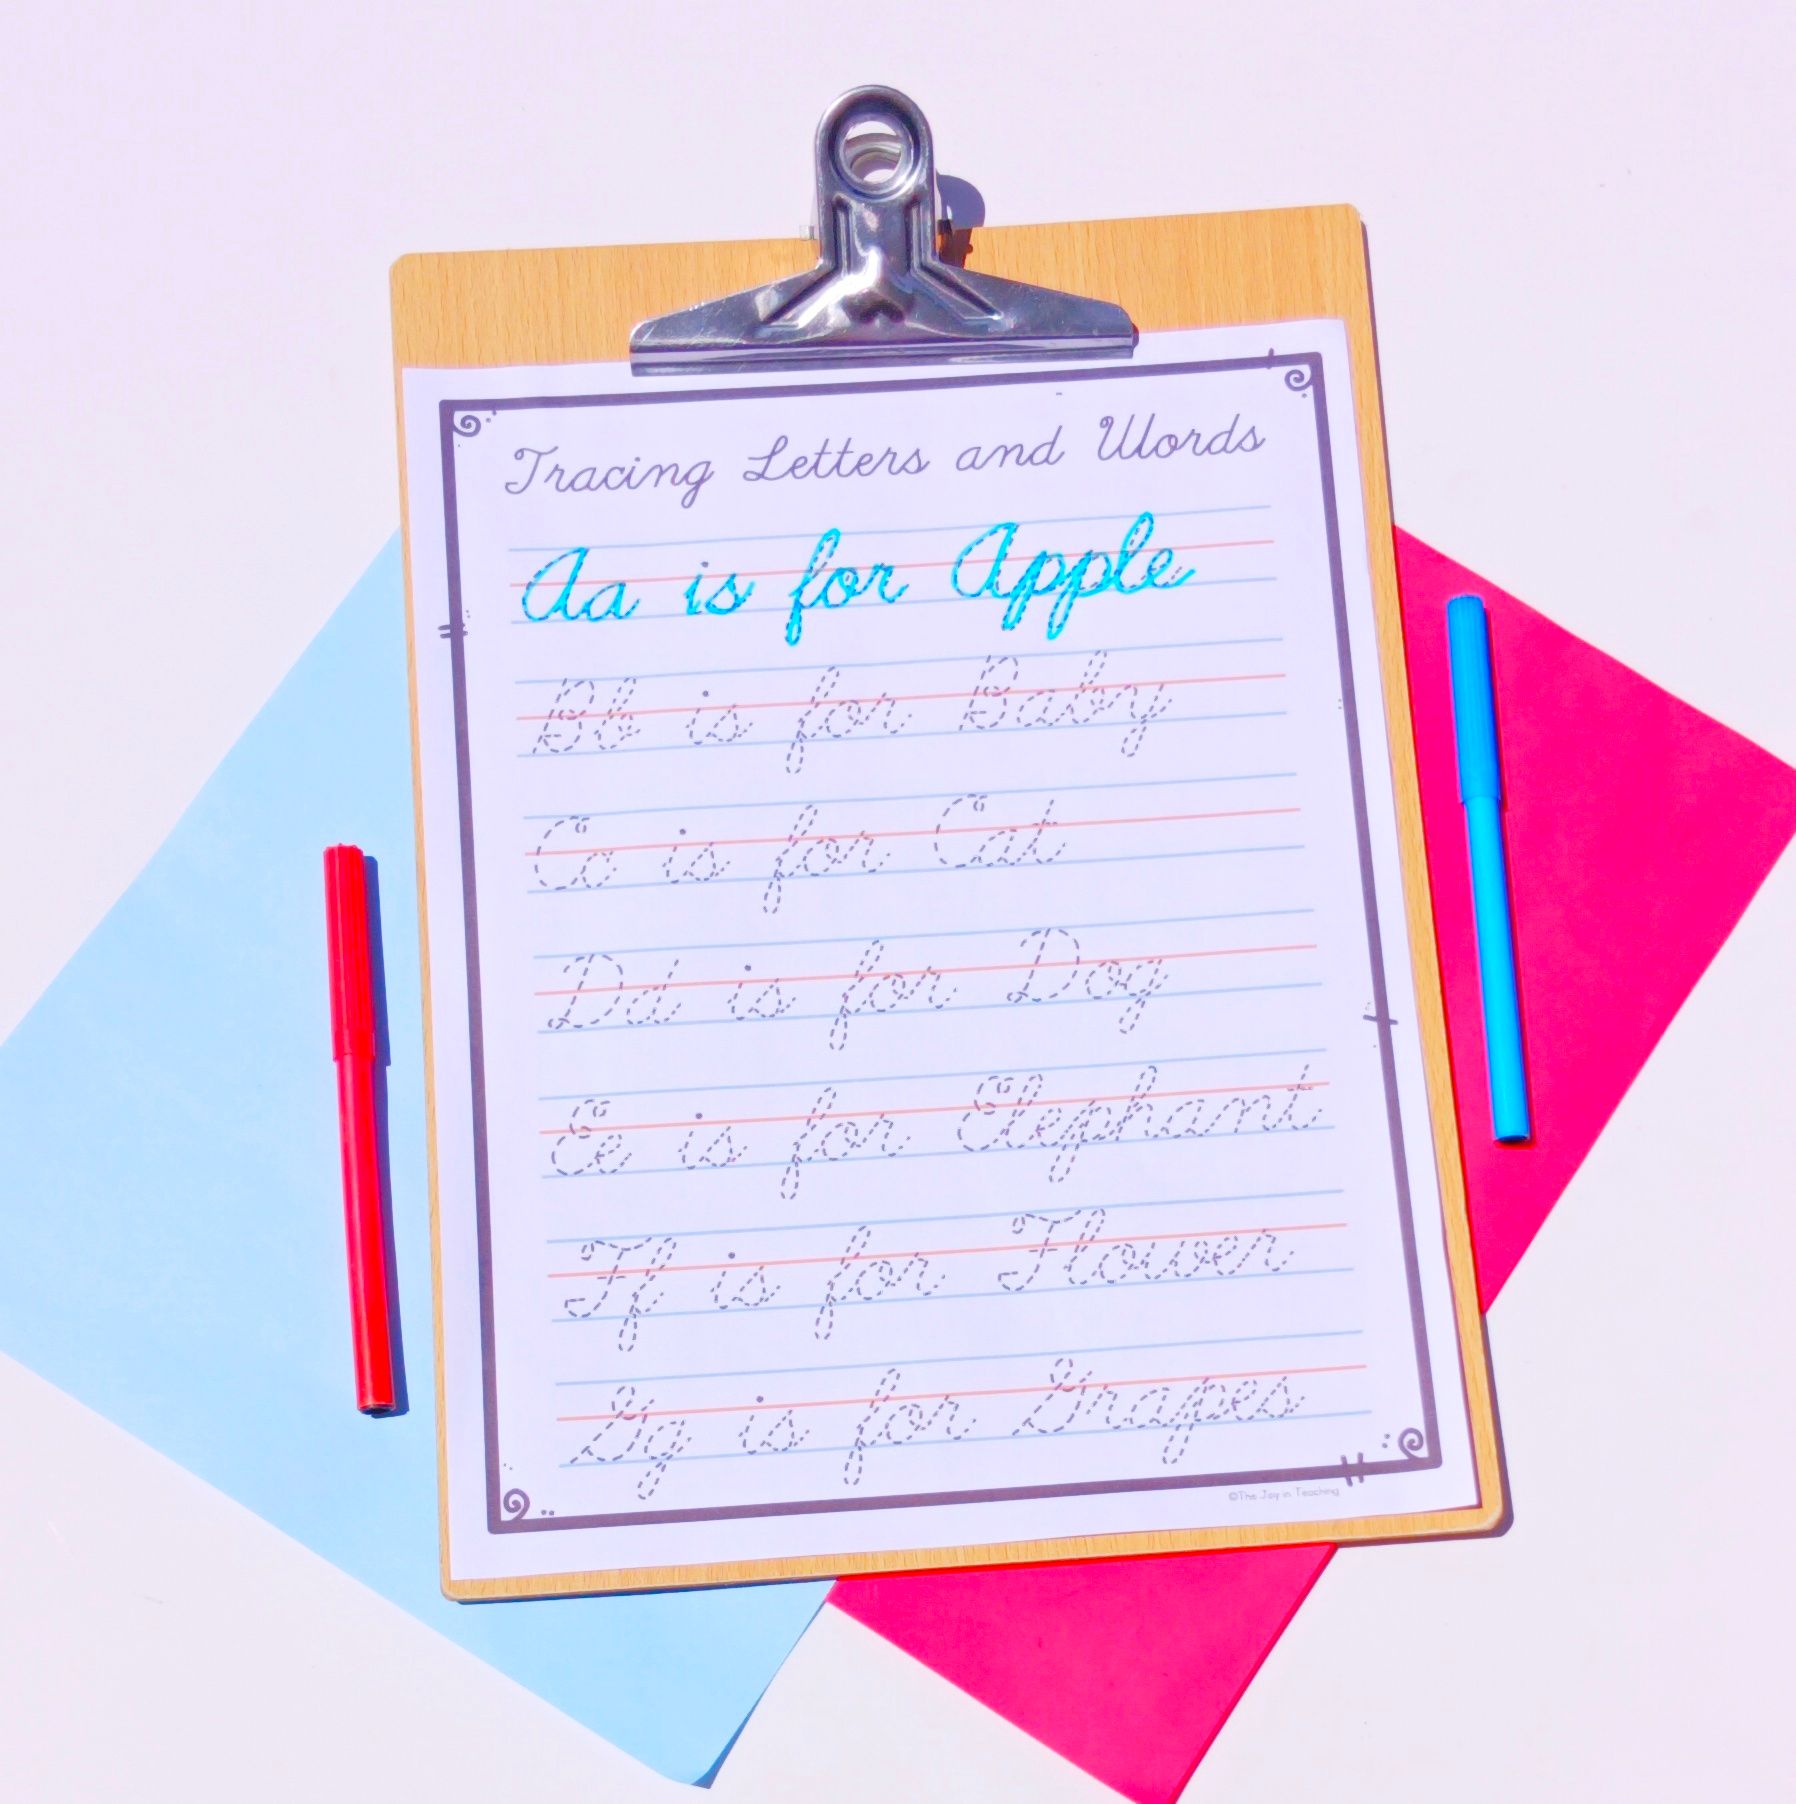 Tracing Letters and Words
Aa is for Apple
Bb is for Baby
Cc is for Cat
Dd is for Dog
Ee is for Elephant
Ff is for Flower
Gg is for Grapes
©The Joy in Teaching